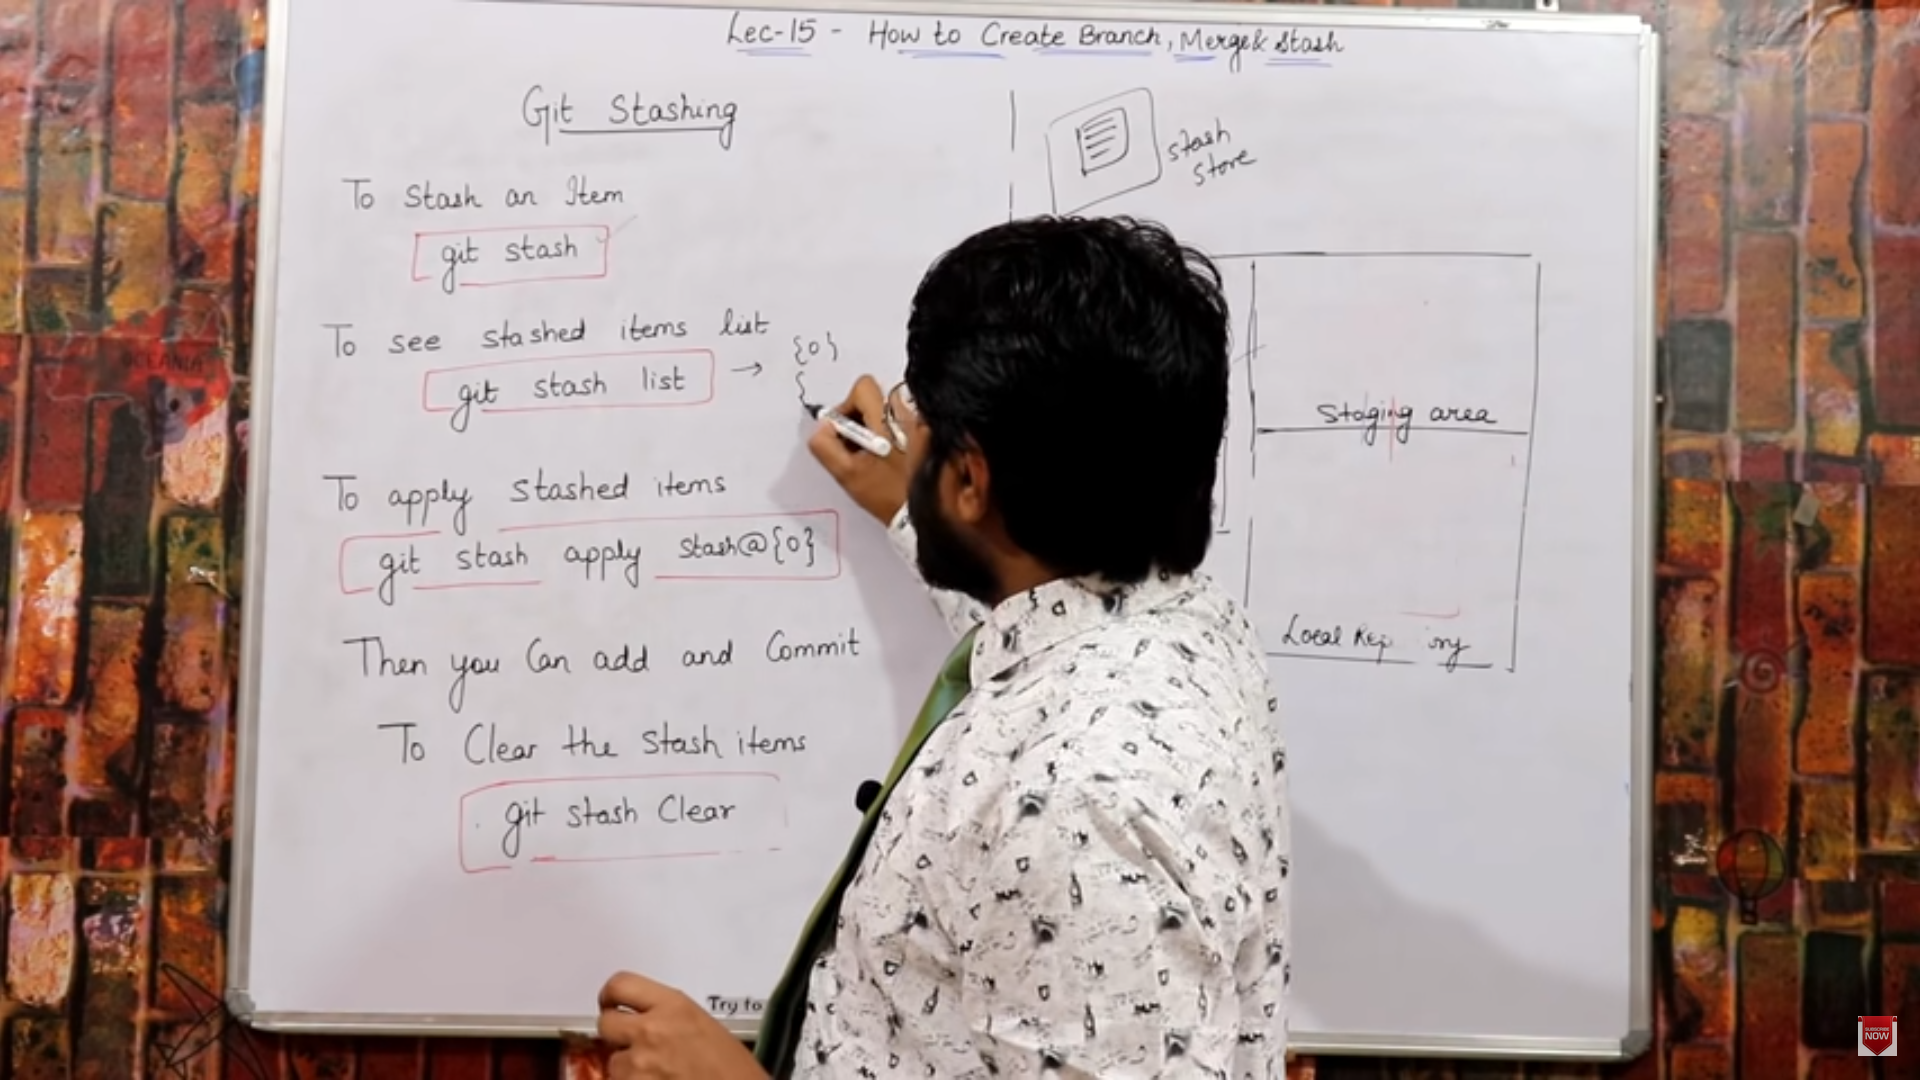 Lec-15 - How to Create Branch, Merge & Stash
Git Stashing
To Stash an Item
git stash
To see stashed items list
git stash list → {0}
{
To apply stashed items
git stash apply stash@{0}
Then you Can add and Commit
To Clear the Stash items
git stash Clear
stash
store
Staging area
Local Rep ory
Try to
OCEANIA
SUBSCRIBE
NOW